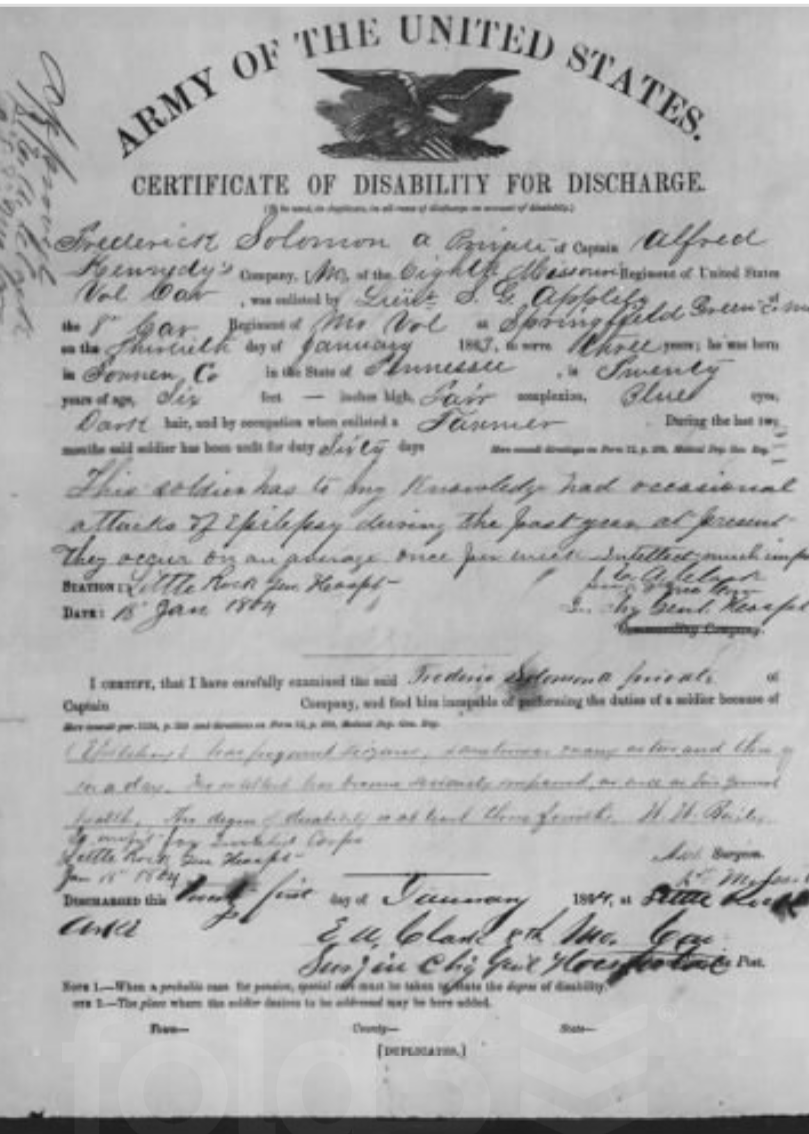 ARMY OF THE UNITED STATES.
CERTIFICATE OF DISABILITY FOR DISCHARGE.
(To be used, in duplicate, in all cases of discharge on account of disability.)
Approved
Frederick Solomon a Private of Captain Alfred
Kennedy's Company, (M), of the Eighth Missouri Regiment of United States
Vol Cav , was enlisted by Lieut S. G. Appleby
the 8th Cav Regiment of Mo Vol at Springfield Green
on the thirtieth day of January 1863, to serve three years; he was born
in Co in the State of Tennessee , is Twenty
years of age, Six feet — inches high, Fair complexion, Blue eyes,
Dark hair, and by occupation when enlisted a Farmer . During the last two
months said soldier has been unfit for duty Sixty days
This soldier has to my knowledge had occasional
attacks of Epilepsy during the past year, at present
they occur on an average once per week Intellect much
STATION: Little Rock Gen Hospt
DATE: 15 Jan 1864
In chg Genl Hospt
Commanding Company.
I CERTIFY, that I have carefully examined the said Frederic Solomon a private of
Captain Company, and find him incapable of performing the duties of a soldier because of
has frequent seizures, sometimes many as two and three
in a day. His intellect has become seriously impaired, as well as his general
health. The degree of disability is at least three fourths. W. H.
Is unfit for Invalid Corps
Little Rock Gen Hospt
Jan 15 1864
Surgeon.
DISCHARGED this twenty first day of January 1864, at Little Rock
Arks
E. A. Clark 8th Mo. Cav
Surg in Chg Genl Hospital Post.
NOTE 1.—When a probable case for pension, special care must be taken to state the degree of disability.
OTE 2.—The place where the soldier desires to be addressed may be here added.
Town— County— State—
[DUPLICATES.]
fold3